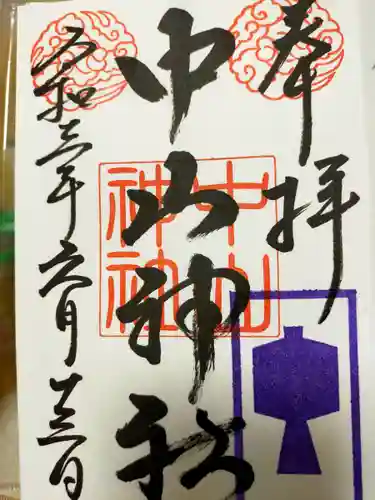 奉拝
中山神社
中山神社
令和三年六月廿三日